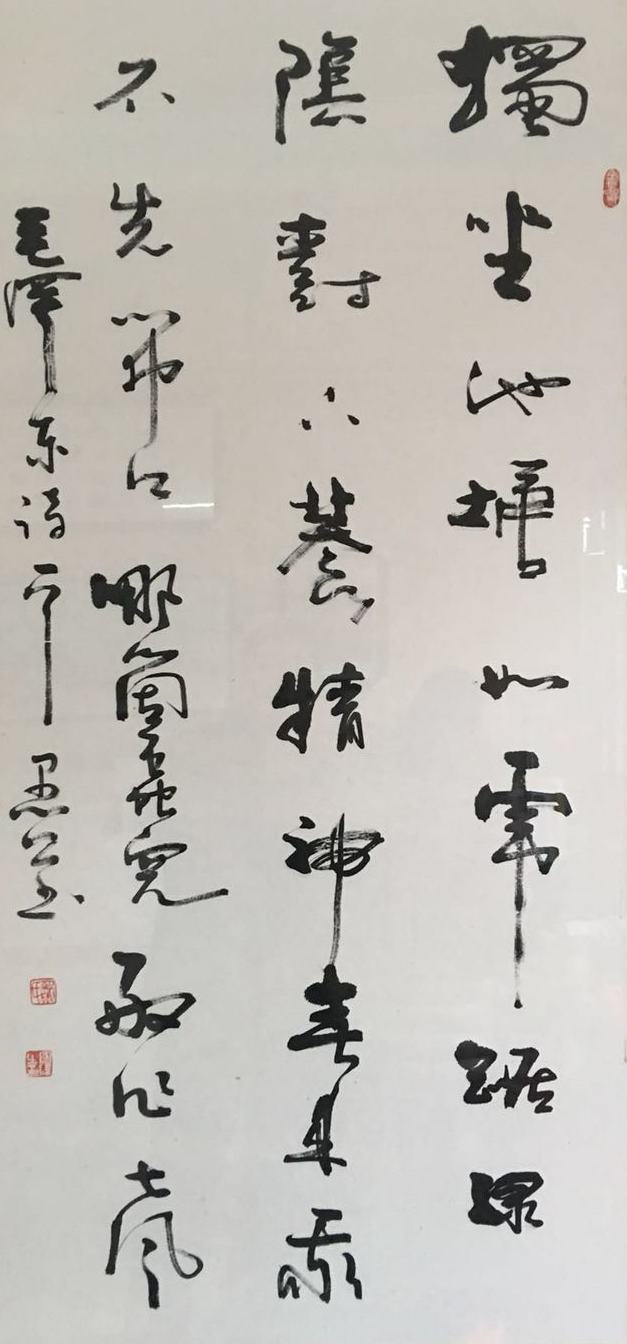 獨坐池塘如虎踞綠
陰樹下養精神春來我
不先開口哪箇蟲兒敢作聲
毛澤東詩一